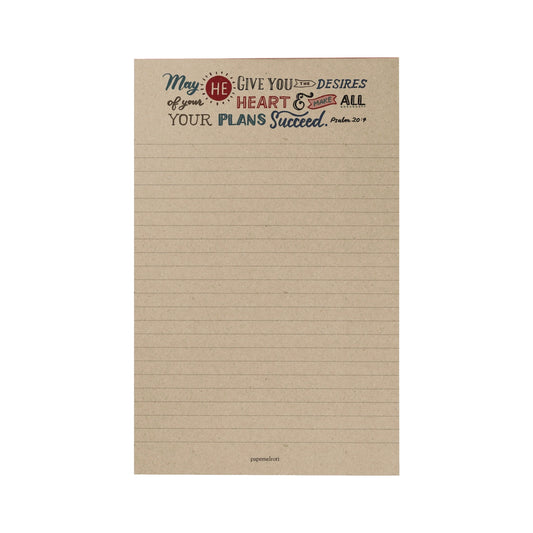 May HE GIVE YOU THE DESIRES
of your HEART & MAKE ALL
YOUR PLANS Succeed. Psalm 20:4
papemelroti